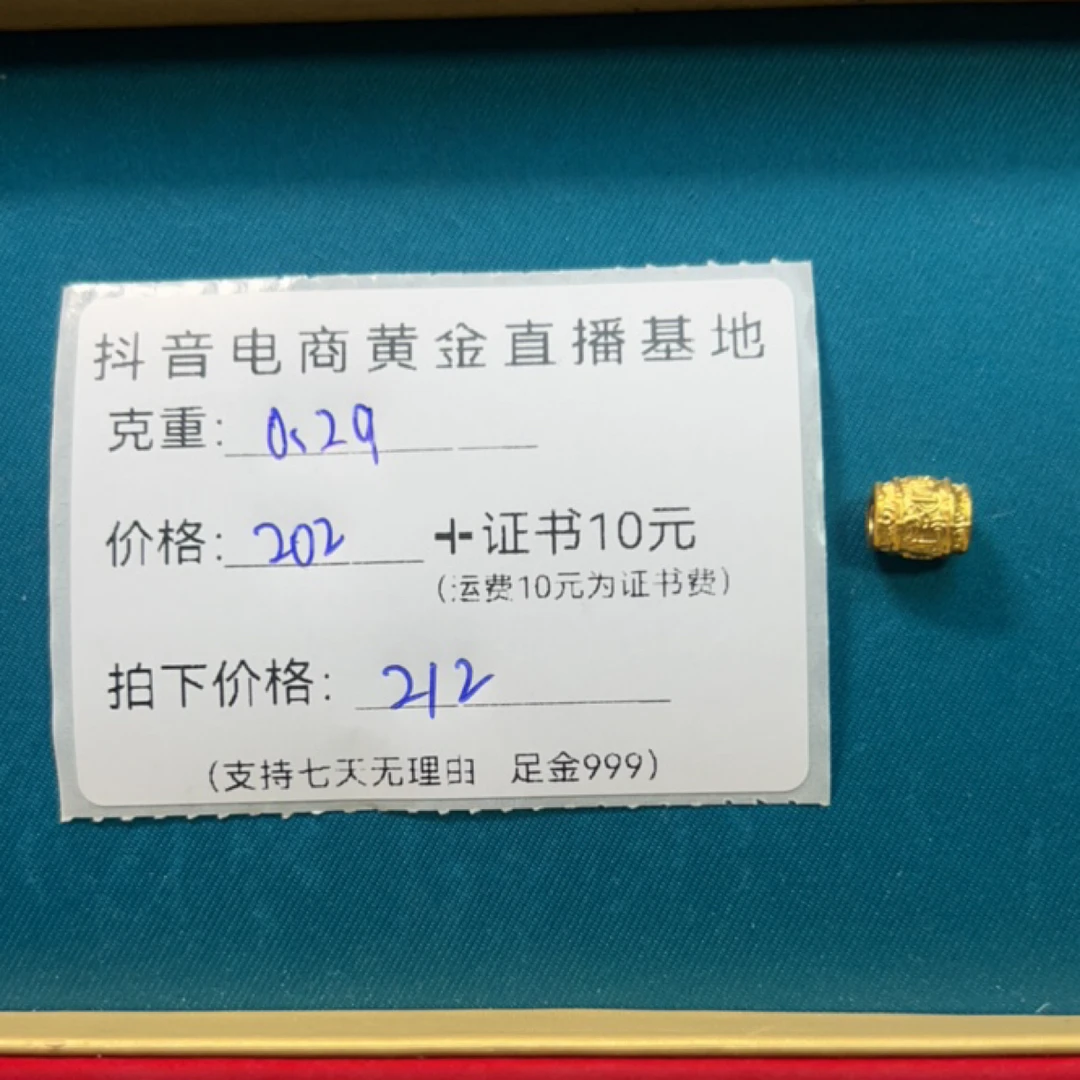 抖音电商黄金直播基地
克重: 0.29
价格: 202 +证书10元
(运费10元为证书费)
拍下价格: 212
(支持七天无理由 足金999)